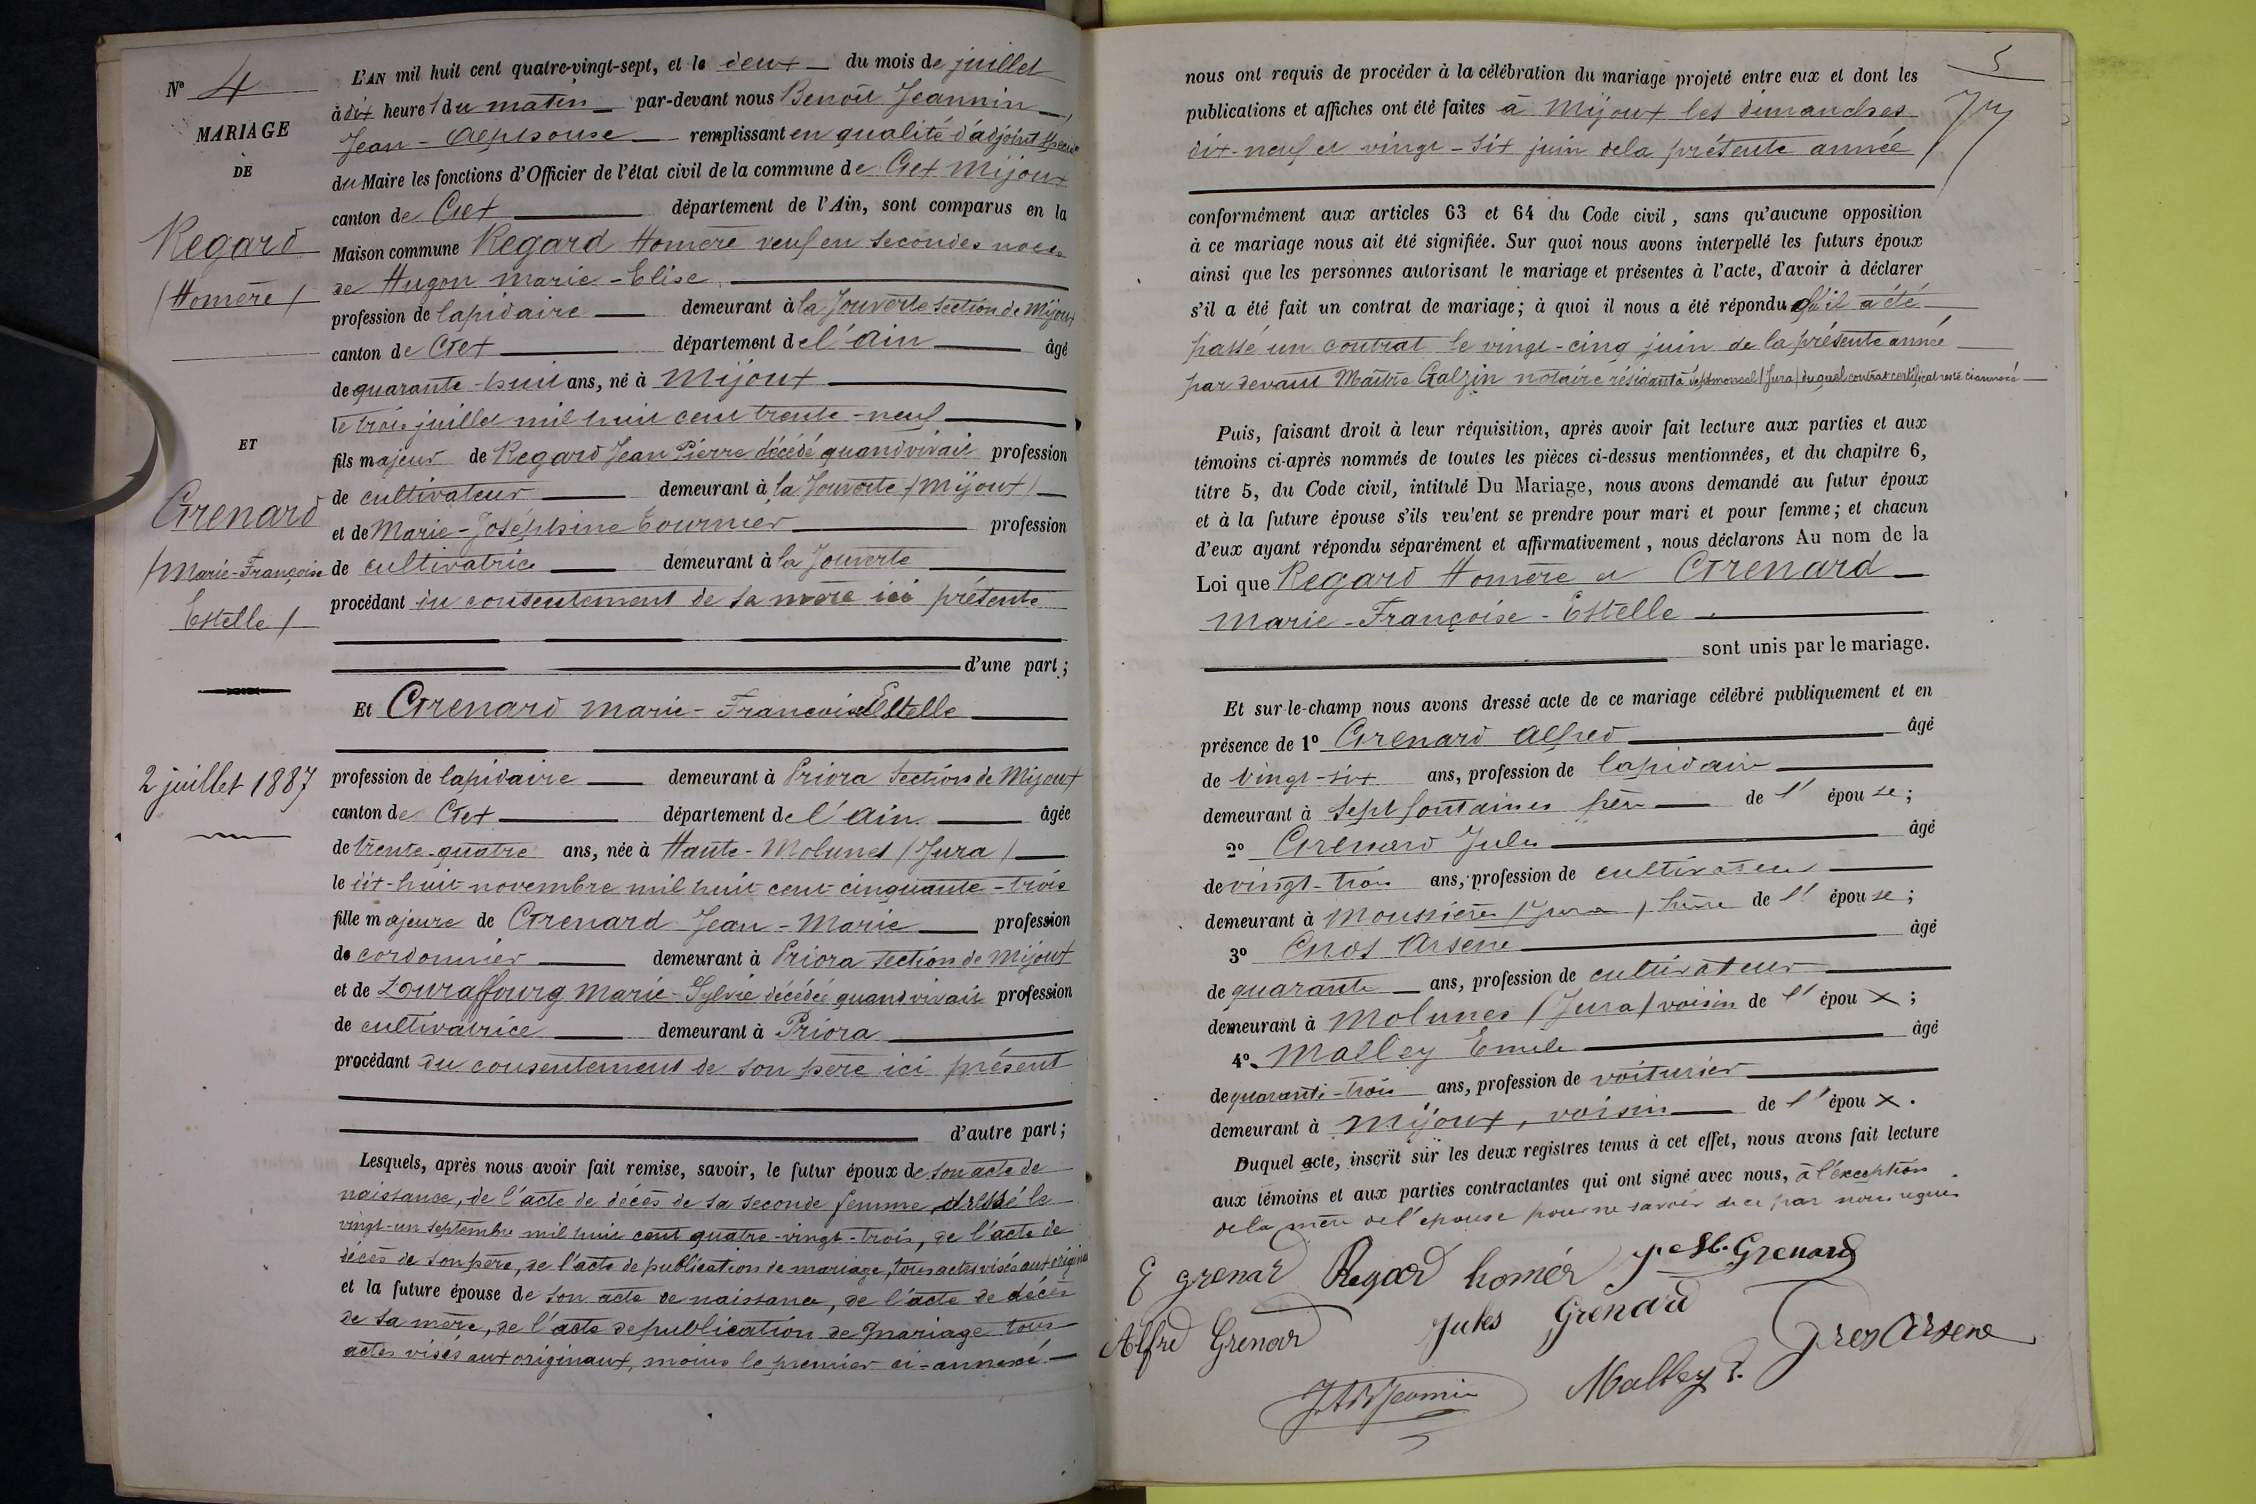 N° 4
MARIAGE
DE
Regard
(Homère)
ET
Grenard
(Marie-Françoise
Estelle)
2 juillet 1887
L'AN mil huit cent quatre-vingt-sept, et le deux du mois de juillet
à dix heures du matin par-devant nous Benoît Jeannin,
Jean-Alphonse remplissant en qualité d'adjoint spécial
du Maire les fonctions d'Officier de l'état civil de la commune de Gex Mijoux
canton de Gex département de l'Ain, sont comparus en la
Maison commune Regard Homère veuf en secondes noces
de Hugon Marie-Elise
profession de lapidaire demeurant à la Jouverte section de Mijoux
canton de Gex département de l'Ain âgé
de quarante-huit ans, né à Mijoux
le trois juillet mil huit cent trente-neuf
fils majeur de Regard Jean Pierre décédé quand vivait profession
de cultivateur demeurant à la Jouverte (Mijoux)
et de Marie-Joséphine Tournier profession
de cultivatrice demeurant à la Jouverte
procédant du consentement de sa mère ici présente
d'une part;
Et Grenard Marie-Francoise Estelle
profession de lapidaire demeurant à Priora section de Mijoux
canton de Gex département de l'Ain âgée
de trente-quatre ans, née à Haute-Molunes (Jura)
le dix-huit novembre mil huit cent cinquante-trois
fille majeure de Grenard Jean-Marie profession
de cordonnier demeurant à Priora section de Mijoux
et de Louraffourg Marie-Sylvie décédée quand vivait profession
de cultivatrice demeurant à Priora
procédant du consentement de son père ici présent
d'autre part;
Lesquels, après nous avoir fait remise, savoir, le futur époux de son acte de
naissance, de l'acte de décès de sa seconde femme dressé le
vingt-un septembre mil huit cent quatre-vingt-trois, de l'acte de
décès de son père, de l'acte de publication de mariage, tous actes visés aux originaux
et la future épouse de son acte de naissance, de l'acte de décès
de sa mère, de l'acte de publication de mariage tous
actes visés aux originaux, moins le premier ci-annexé.
5
nous ont requis de procéder à la célébration du mariage projeté entre eux et dont les
publications et affiches ont été faites à Mijoux les dimanches
dix-neuf et vingt-six juin de la présente année
conformément aux articles 63 et 64 du Code civil, sans qu'aucune opposition
à ce mariage nous ait été signifiée. Sur quoi nous avons interpellé les futurs époux
ainsi que les personnes autorisant le mariage et présentes à l'acte, d'avoir à déclarer
s'il a été fait un contrat de mariage; à quoi il nous a été répondu qu'il a été
passé un contrat le vingt-cinq juin de la présente année
par devant Maître Galzin notaire résidant à Septmoncel (Jura) duquel contrat certificat reste ci annexé
Puis, faisant droit à leur réquisition, après avoir fait lecture aux parties et aux
témoins ci-après nommés de toutes les pièces ci-dessus mentionnées, et du chapitre 6,
titre 5, du Code civil, intitulé Du Mariage, nous avons demandé au futur époux
et à la future épouse s'ils veu'ent se prendre pour mari et pour femme; et chacun
d'eux ayant répondu séparément et affirmativement, nous déclarons Au nom de la
Loi que Regard Homère et Grenard
Marie-Françoise-Estelle
sont unis par le mariage.
Et sur-le-champ nous avons dressé acte de ce mariage célébré publiquement et en
présence de 1° Grenard Alfred âgé
de vingt-six ans, profession de lapidaire
demeurant à Septfontaines frère de l'épouse;
2° Grenard Jules âgé
de vingt-trois ans, profession de cultivateur
demeurant à Moussières (Jura) frère de l'épouse;
3° Gros Arsene âgé
de quarante ans, profession de cultivateur
demeurant à Molunes (Jura) voisin de l'époux;
4° Malley Emile âgé
de quarante-trois ans, profession de voiturier
demeurant à Mijoux, voisin de l'époux.
Duquel acte, inscrit sur les deux registres tenus à cet effet, nous avons fait lecture
aux témoins et aux parties contractantes qui ont signé avec nous, à l'exception
de la mère de l'epouse pour ne savoir de ce par nous requis
E grenard Regard homér J M. Grenard
Alfred Grenard Jules Grenard Gros Arsene
Malley E.
J A B Jeannin